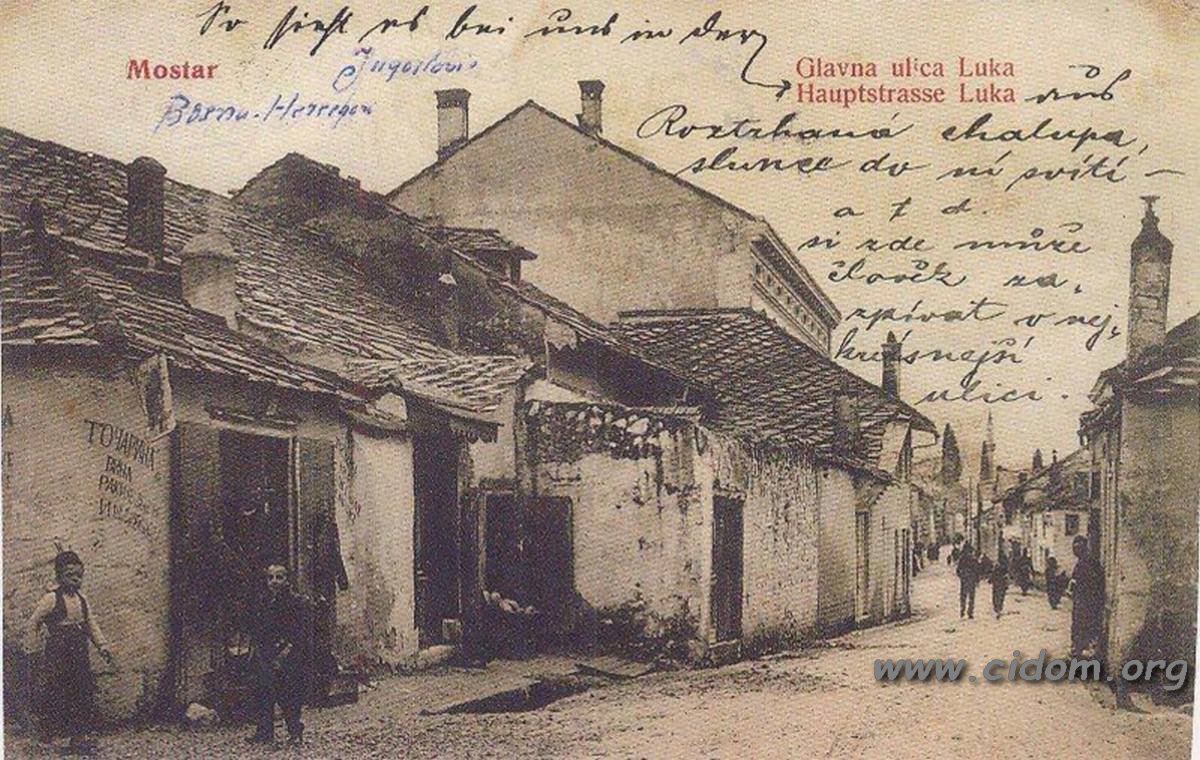 So sieht es bei uns in der
Mostar
Jugoslavie
Bosna-Hercegov
Glavna ulica Luka
Hauptstrasse Luka aus
Roztrhaná chalupa,
slunce do ní svítí –
a t d.
si zde může
člověk za,
zpívat v nej,
krásnejší
ulici.
ТОЧАРИНА
ВИНА
www.cidom.org